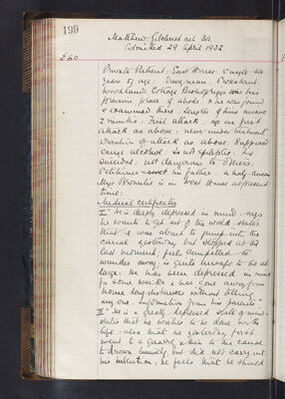 199
Matthew Gilchrist aet 34
Admitted 29 April 1902
Private Patient. East House. Single 34
years of age. Dairyman. Protestant.
Woodland Cottage Bishopbriggs was his
previous place of abode & he was found
& examined there. Length of time insane
2 months. First attack. Age on first
attack as above. Never under treatment.
Duration of attack as above. Supposed
cause alcohol. Is not epileptic. Is
suicidal; not dangerous to others.
Petitioner his father. A half cousin
Mrs is in West House at present
time.
Medical certificates
I "He is deeply depressed in mind. says
he wants to get out of the world. states
that he was about to jump into the
canal yesterday but stopped at the
last moment, feels compelled to
wander away & quite unsafe to be at
large. He has been depressed in mind
for some weeks & was gone away from
home long distances without telling
any one. information from his parents"
II "He is in a greatly depressed state of mind -
states that he wishes to be done with
life - also that he yesterday first
went to a quarry & then to the canal
to drown himself, but did not carry out
his intention; he feels that he should